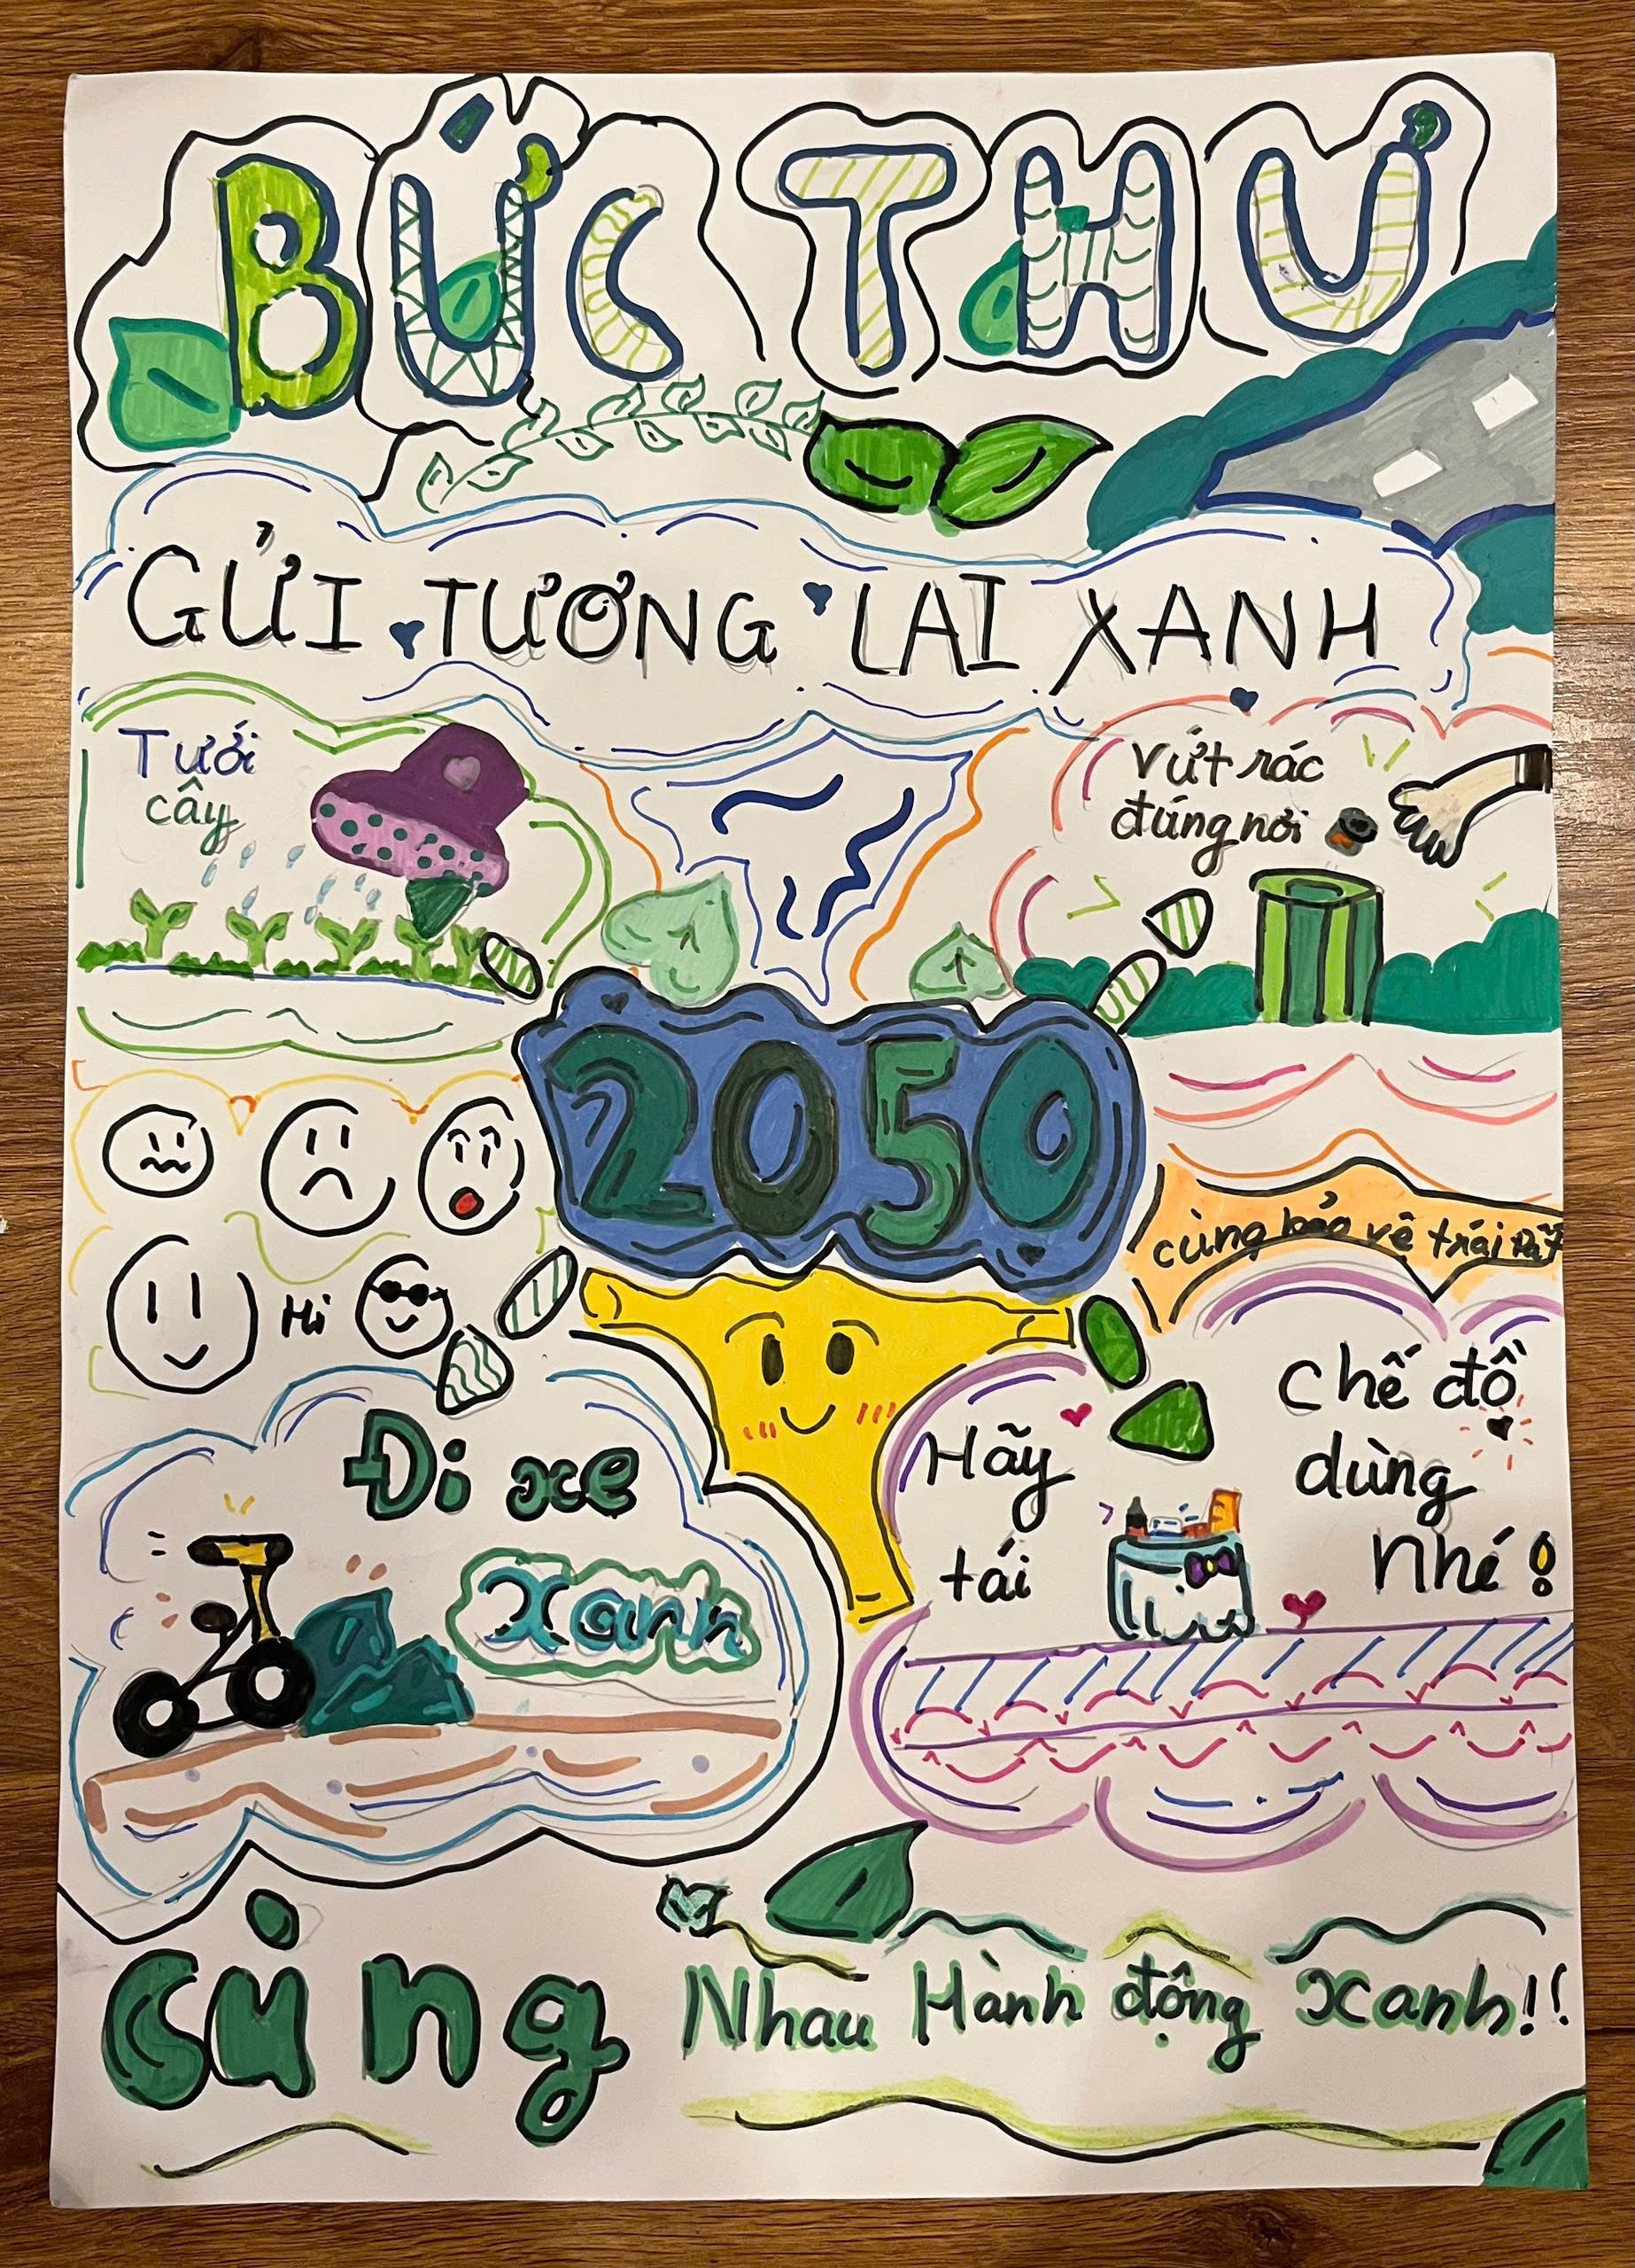 BỨC THƯ
GỬI TƯƠNG LAI XANH
Tưới
cây
Vứt rác
đúng nơi
2050
cùng bảo vệ trái Đất
Hi
Đi xe
Xanh
Hãy
tái
chế đồ
dùng
Nhé!
Cùng Nhau Hành động xanh!!